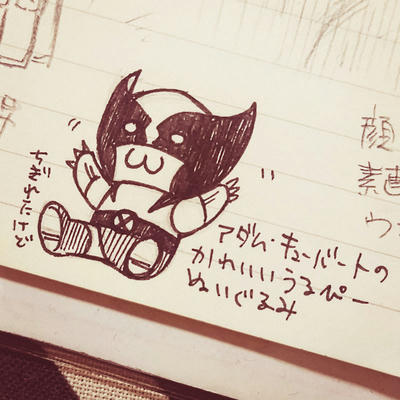 ちぎれたけど
アダム・キューバートの
かわいいうるぴー
ぬいぐるみ
顔
素画